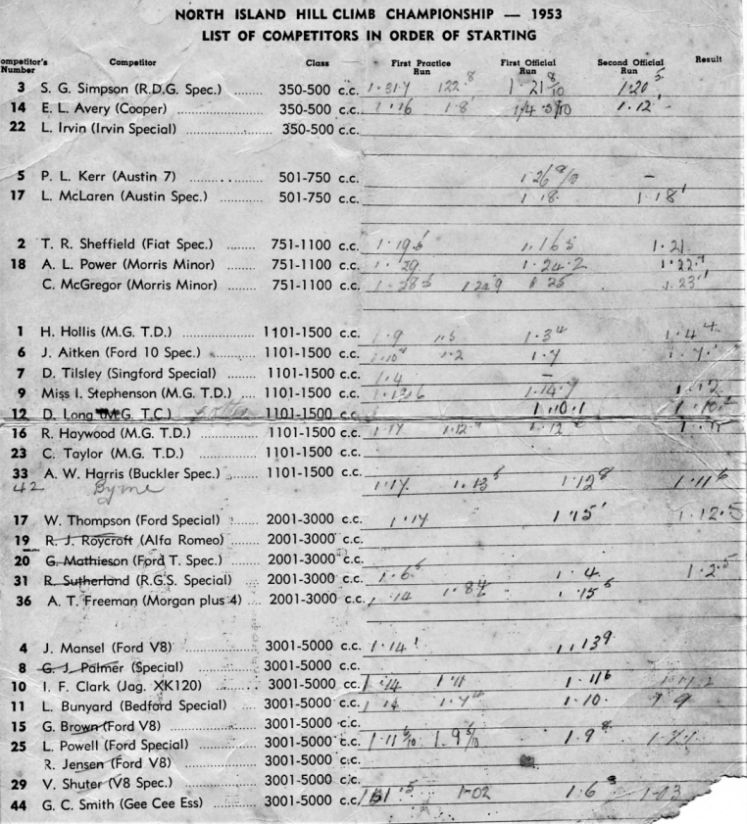 NORTH ISLAND HILL CLIMB CHAMPIONSHIP — 1953
LIST OF COMPETITORS IN ORDER OF STARTING
ompetitor's Number Competitor Class First Practice Run First Official Run Second Official Run Result
3 S. G. Simpson (R.D.G. Spec.) ........ 350-500 c.c. 1·31·7 122·8 1·21 8/10 1·20 5
14 E. L. Avery (Cooper) ........ 350-500 c.c. 1·16 1·8 1·12
22 L. Irvin (Irvin Special) ........ 350-500 c.c.
5 P. L. Kerr (Austin 7) ........ 501-750 c.c. 1·26 9/10 —
17 L. McLaren (Austin Spec.) ........ 501-750 c.c. 1·18· 1·18
2 T. R. Sheffield (Fiat Spec.) ........ 751-1100 c.c. 1·19 1·16 5 1·21
18 A. L. Power (Morris Minor) ........ 751-1100 c.c. 1·29 1·24·2 1·22
C. McGregor (Morris Minor) ........ 751-1100 c.c. 1·25 1·23
1 H. Hollis (M.G. T.D.) ........ 1101-1500 c.c. 1·9 1·5 1·3 4 1·4 4
6 J. Aitken (Ford 10 Spec.) ........ 1101-1500 c.c. 1·10 1·2 1·7 1·7
7 D. Tilsley (Singford Special) ........ 1101-1500 c.c. 1·4 —
9 Miss I. Stephenson (M.G. T.D.) .... 1101-1500 c.c. 1·14·7 1·12
12 D. Long (M.G. T.C.) 1101-1500 c.c. 1·10·1 1·10
16 R. Haywood (M.G. T.D.) ........ 1101-1500 c.c. 1·17 1·12 1·12
23 C. Taylor (M.G. T.D.) ........ 1101-1500 c.c.
33 A. W. Harris (Buckler Spec.) .... 1101-1500 c.c.
42 Byrne 1·17 1·13 5 1·12 8 1·11 6
17 W. Thompson (Ford Special) ........ 2001-3000 c.c. 1·14 1·15 1·12·5
19 R. J. Roycroft (Alfa Romeo) ........ 2001-3000 c.c.
20 G. Mathieson (Ford T. Spec.) ........ 2001-3000 c.c.
31 R. Sutherland (R.G.S. Special) .... 2001-3000 c.c. 1·6 1·4 1·2·5
36 A. T. Freeman (Morgan plus 4) .... 2001-3000 c.c. 1·14 1·15 6
4 J. Mansel (Ford V8) ........ 3001-5000 c.c. 1·14 1·13 9
8 G. J. Palmer (Special) ........ 3001-5000 c.c.
10 I. F. Clark (Jag. XK120) ........ 3001-5000 cc. 1·14 1·11 1·11 6
11 L. Bunyard (Bedford Special) ........ 3001-5000 c.c. 1·14 1·10· 9
15 G. Brown (Ford V8) ........ 3001-5000 c.c.
25 L. Powell (Ford Special) ........ 3001-5000 c.c. 1·11 6/10 1·9 5/10 1·9 8
R. Jensen (Ford V8) ........ 3001-5000 c.c.
29 V. Shuter (V8 Spec.) ........ 3001-5000 c.c.
44 G. C. Smith (Gee Cee Ess) ........ 3001-5000 c.c. 1·02 1·6 1·13